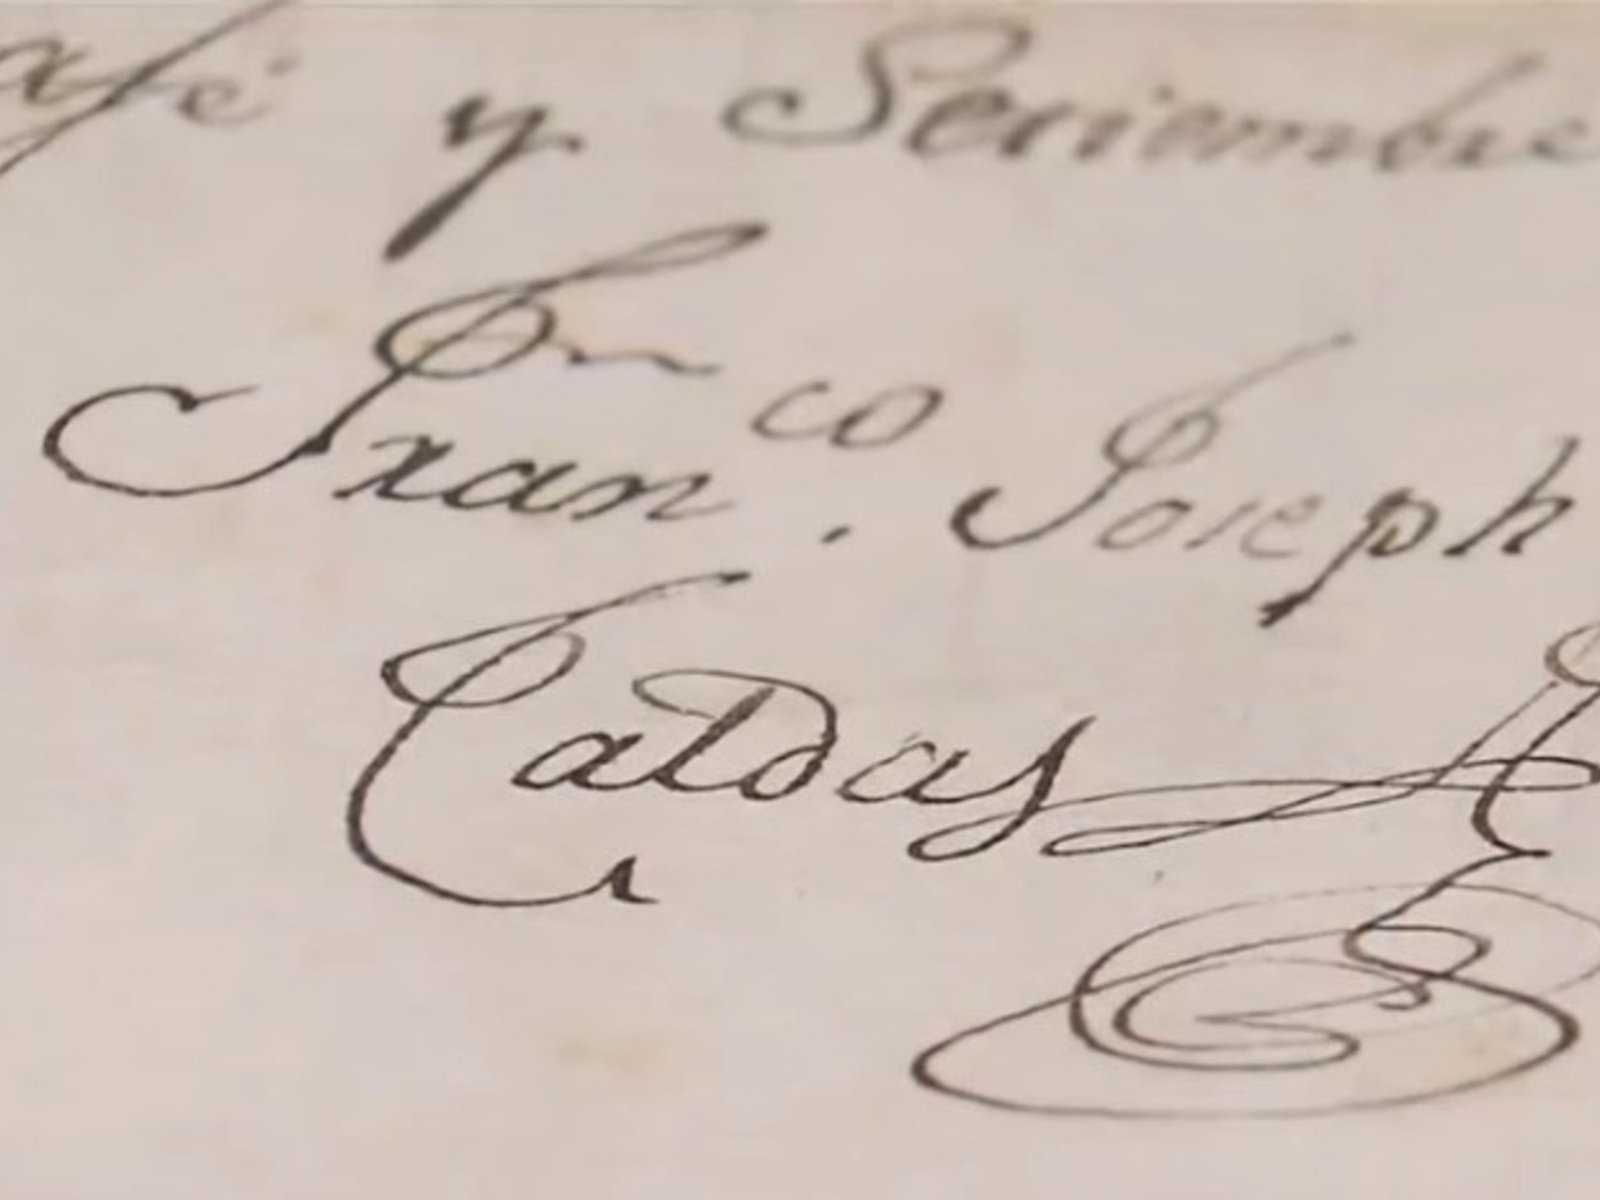 afé y Setiembre
Fran.co Joseph
Caldas